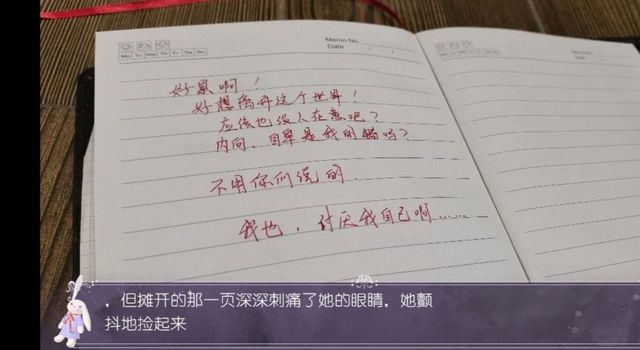 Memo No.
Date / /
Mo Tu We Th Fr Sa Su
Memo No.
Date
好累啊！
好想离开这个世界！
应该也没人在意吧？
内向、自卑是我的错吗？
不用你们说的
我也，讨厌我自己啊……
，但摊开的那一页深深刺痛了她的眼睛，她颤
抖地捡起来